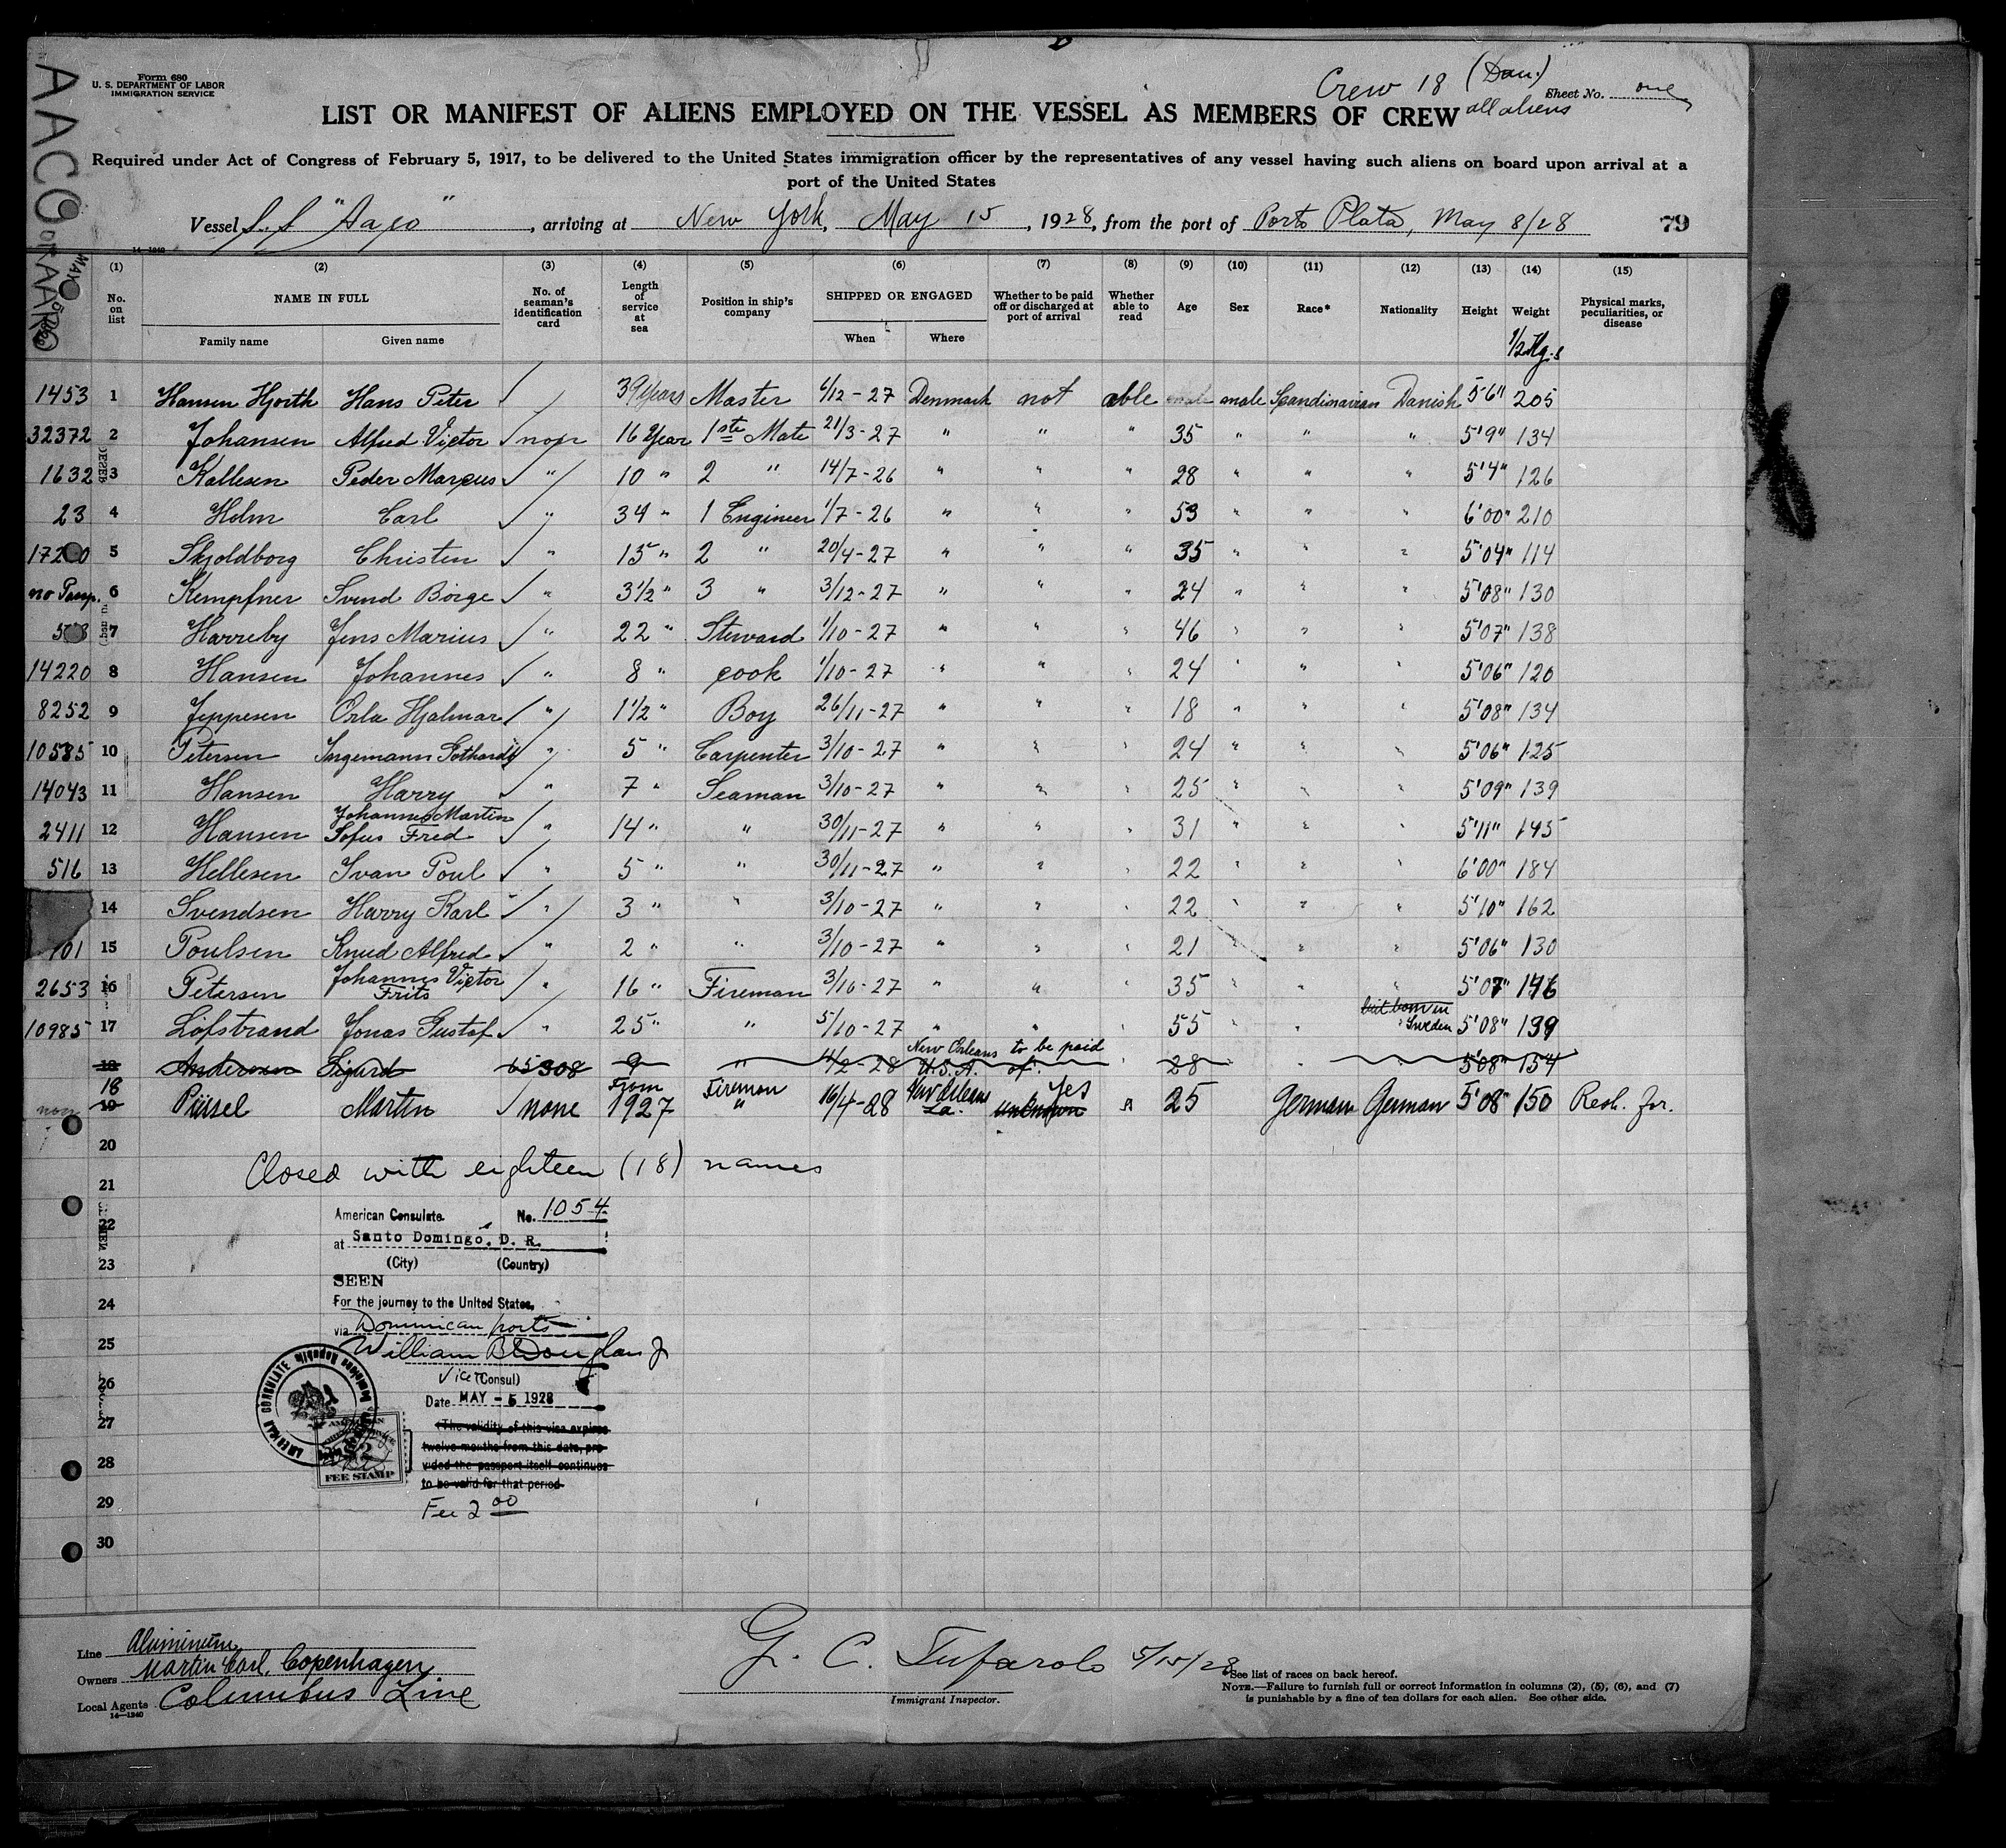 Form 680
U. S. DEPARTMENT OF LABOR
IMMIGRATION SERVICE
Crew 18 (Dan.)
all aliens
Sheet No. one
LIST OR MANIFEST OF ALIENS EMPLOYED ON THE VESSEL AS MEMBERS OF CREW
Required under Act of Congress of February 5, 1917, to be delivered to the United States immigration officer by the representatives of any vessel having such aliens on board upon arrival at a
port of the United States
Vessel S.S "Aago", arriving at New York, May 15, 1928, from the port of Porto Plata, May 8/28
79
14—1240
(1) (2) (3) (4) (5) (6) (7) (8) (9) (10) (11) (12) (13) (14) (15)
No. on list
NAME IN FULL
Family name Given name
No. of seaman's identification card
Length of service at sea
Position in ship's company
SHIPPED OR ENGAGED
When Where
Whether to be paid off or discharged at port of arrival
Whether able to read
Age Sex Race* Nationality Height Weight
Physical marks, peculiarities, or disease
1453 1 Hansen Hjorth Hans Peter 39 years Master 6/12-27 Denmark not able male Scandinavian Danish 5'6" 205
32372 2 Johansen Alfred Victor none 16 Year 1ste Mate 21/3-27 " " " 35 " " " 5'9" 134
1632 3 Kallesen Peder Marcus " 10 " 2 " 14/7-26 " " " 28 " " " 5'4" 126
23 4 Holm Carl " 34 " 1 Engineer 1/7-26 " " " 53 " " " 6'00" 210
5 Skjoldborg Christen " 15 " 2 " 20/4-27 " " " 35 " " " 5'04" 114
no Passp. 6 Kempfner Svend Börge " 3 1/2 " 3 " 3/12-27 " " " 24 " " " 5'08" 130
7 Harreby Jens Marius " 22 " Steward 1/10-27 " " " 46 " " " 5'07" 138
14220 8 Hansen Johannes " 8 " cook 1/10-27 " " " 24 " " " 5'06" 120
8252 9 Jeppesen Orla Hjalmar " 1 1/2 " Boy 26/11-27 " " " 18 " " " 5'08" 134
10585 10 Petersen Ingemann Gothardt " 5 " Carpenter 3/10-27 " " " 24 " " " 5'06" 125
14043 11 Hansen Harry " 7 " Seaman 3/10-27 " " " 25 " " " 5'09" 139
2411 12 Hansen Johannes Martin Sofus Fred " 14 " " 30/11-27 " " " 31 " " " 5'11" 145
516 13 Hellesen Ivan Poul " 5 " " 30/11-27 " " " 22 " " " 6'00" 184
14 Svendsen Harry Karl " 3 " " 3/10-27 " " " 22 " " " 5'10" 162
101 15 Poulsen Knud Alfred " 2 " " 3/10-27 " " " 21 " " " 5'06" 130
2653 16 Petersen Johannes Victor Frits " 16 " Fireman 3/10-27 " " " 35 " " " 5'07" 146
10985 17 Löfstrand Jonas Gustof " 25 " " 5/10-27 " " " 55 " " but born in Sweden 5'08" 139
18 Andersen Sigurd 65308 9 " 4/2-28 New Orleans U.S.A. to be paid of. " 28 " 5'08" 154
18 19 Püssel Martin none From 1927 Fireman " 16/4-28 New Orleans La. Yes unknown " 25 German German 5'08" 150 Resh. for.
20
Closed with eighteen (18) names
21
American Consulate No. 1054
22
at Santo Domingo, D. R.
23
(City) (Country)
SEEN
24
For the journey to the United States,
via Dominican ports
25
William B Douglas Jr
Vice (Consul)
26
Date MAY - 5 1928
27
(The validity of this visa expires
twelve months from this date, pro-
28
vided the passport itself continues
to be valid for that period.
AMERICAN CONSULATE
FEE STAMP
29
Fee 2 00
30
Line Aluminum
Owners Martin Carl, Copenhagen
Local Agents Columbus Line
14—1240
G. C. Tufarolo 5/15/28
Immigrant Inspector.
*See list of races on back hereof.
NOTE.—Failure to furnish full or correct information in columns (2), (5), (6), and (7)
is punishable by a fine of ten dollars for each alien. See other side.